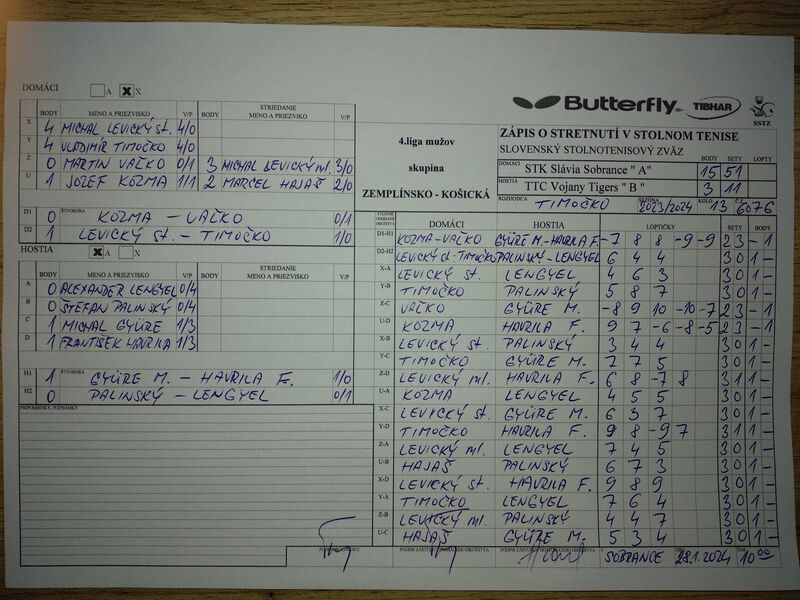 DOMÁCI A X X
BODY MENO A PRIEZVISKO V/P BODY STRIEDANIE MENO A PRIEZVIKO V/P
X 4 MICHAL LEVICKÝ st. 4/0
Y 4 VLADIMÍR TIMOČKO 4/0
Z 0 MARTIN VAĽKO 0/1 3 MICHAL LEVICKÝ ml. 3/0
U 1 JOZEF KOZMA 1/1 2 MARCEL HAJAŠ 2/0
D1 0 ŠTVORHRA KOZMA – VAĽKO 0/1
D2 1 LEVICKÝ st. – TIMOČKO 1/0
HOSTIA X A X
BODY MENO A PRIEZVISKO V/P BODY STRIEDANIE MENO A PRIEZVISKO V/P
A 0 ALEXANDER LENGYEL 0/4
B 0 ŠTEFAN PALINSKÝ 0/4
C 1 MICHAL GYÜRE 1/3
D 1 FRANTIŠEK HAVRILA 1/3
H1 1 ŠTVORHRA GYÜRE M. – HAVRILA F. 1/0
H2 0 PALINSKÝ – LENGYEL 0/1
PRIPOMIENKY, POZNÁMKY
Butterfly TIBHAR SSTZ
4.liga mužov
skupina
ZEMPLÍNSKO - KOŠICKÁ
ZÁPIS O STRETNUTÍ V STOLNOM TENISE
SLOVENSKÝ STOLNOTENISOVÝ ZVÄZ
BODY SETY LOPTY
DOMÁCI STK Slávia Sobrance " A" 15 51
HOSTIA TTC Vojany Tigers " B " 3 11
ROZHODCA TIMOČKO SEZÓNA 2023/2024 KOLO 13 Č.S. 6076
DOMÁCI HOSTIA LOPTIČKY SETY BODY
D1-H1 KOZMA-VAĽKO GYÜRE M.-HAVRILA F. -7 8 8 -9 -9 2 3 - 1
D2-H2 LEVICKÝ st.-TIMOČKO PALINSKÝ-LENGYEL 6 4 4 3 0 1 -
X-A LEVICKÝ st. LENGYEL 4 6 3 3 0 1 -
Y-B TIMOČKO PALINSKÝ 5 8 7 3 0 1 -
Z-C VAĽKO GYÜRE M. -8 9 10 -10 -7 2 3 - 1
U-D KOZMA HAVRILA F. 9 7 -6 -8 -5 2 3 - 1
X-B LEVICKÝ st. PALINSKÝ 3 4 4 3 0 1 -
Y-C TIMOČKO GYÜRE M. 7 7 5 3 0 1 -
Z-D LEVICKÝ ml. HAVRILA F. 6 8 -7 8 3 1 1 -
U-A KOZMA LENGYEL 4 5 5 3 0 1 -
X-C LEVICKÝ st. GYÜRE M. 6 3 7 3 0 1 -
Y-D TIMOČKO HAVRILA F. 9 8 -9 7 3 1 1 -
Z-A LEVICKÝ ml. LENGYEL 7 4 5 3 0 1 -
U-B HAJAŠ PALINSKÝ 6 7 3 3 0 1 -
X-D LEVICKÝ st. HAVRILA F. 9 8 9 3 0 1 -
Y-A TIMOČKO LENGYEL 7 6 4 3 0 1 -
Z-B LEVICKÝ ml. PALINSKÝ 4 4 7 3 0 1 -
U-C HAJAŠ GYÜRE M. 5 3 4 3 0 1 -
SOBRANCE 28.1.2024 10 00